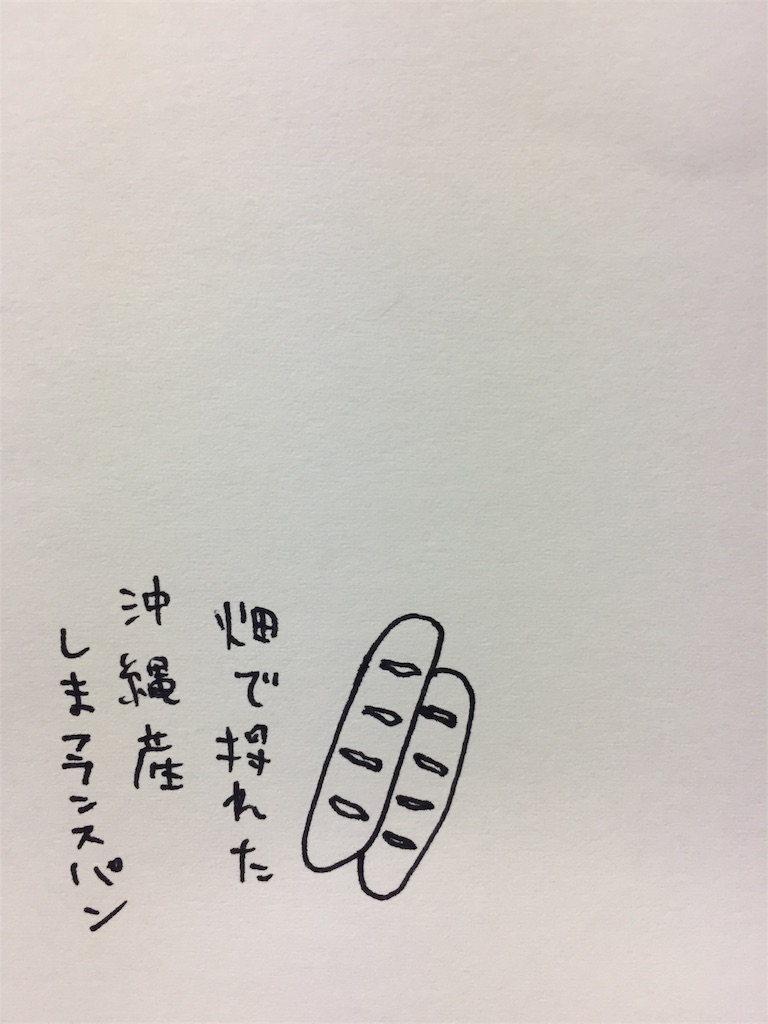 畑で採れた
沖縄産
しまフランスパン